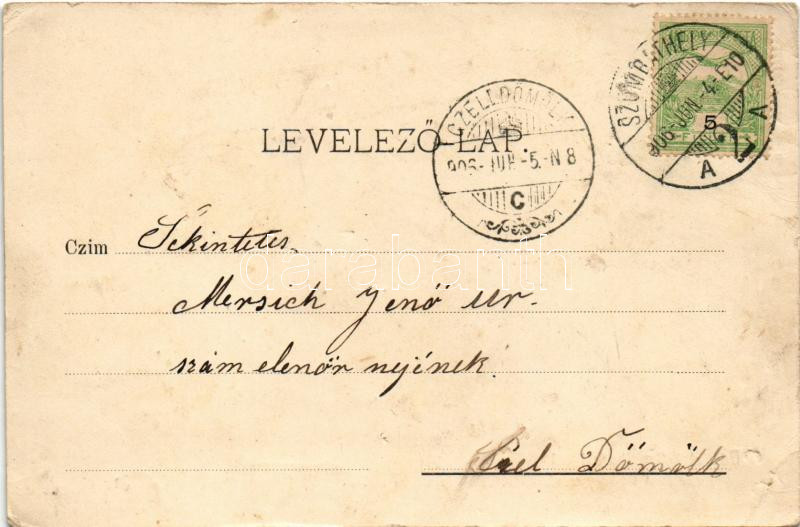 SZOMBATHELY
906 JUN. 4. E10
5
A A
CZELLDÖMÖLK
906-JUN-5.-N 8
C
LEVELEZŐ-LAP.
Czim Tekintetes
darabanth
Mersich Jenő Ur.
szám elenőr nejének
Czel Dömölk